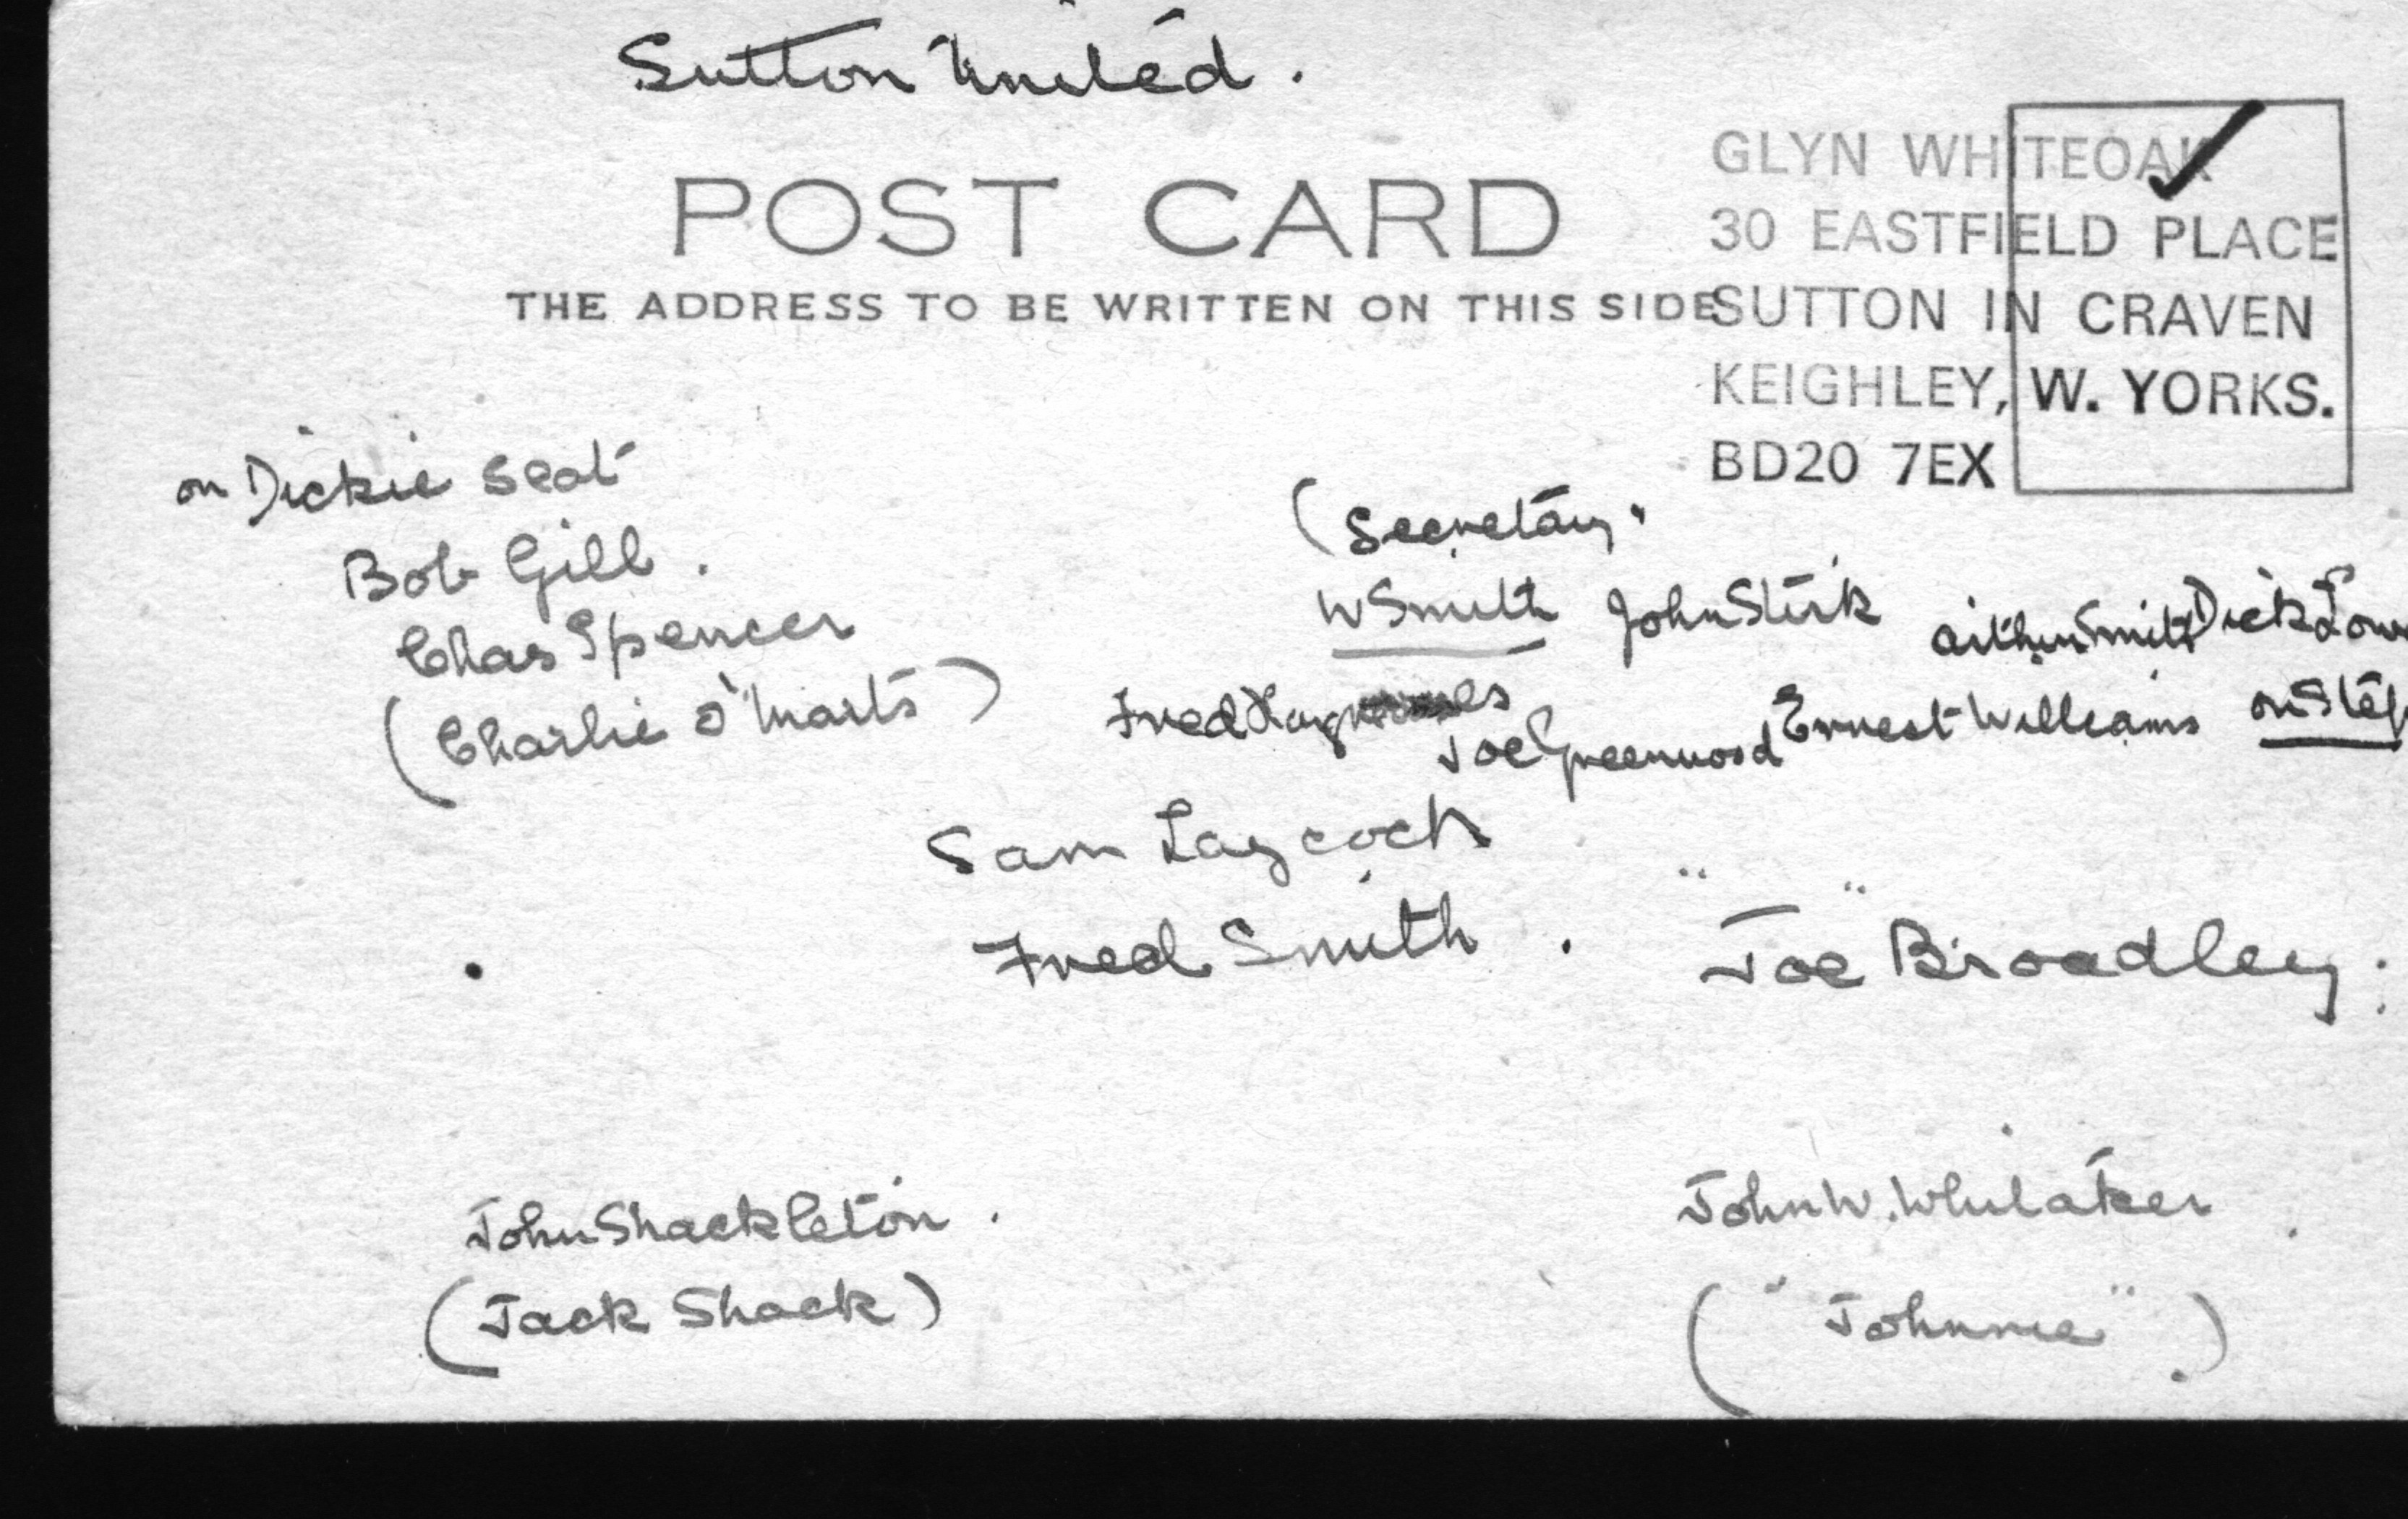 Sutton United.
POST CARD
THE ADDRESS TO BE WRITTEN ON THIS SIDE
GLYN WHITEOAK
30 EASTFIELD PLACE
SUTTON IN CRAVEN
KEIGHLEY, W. YORKS.
BD20 7EX
on Dickie Seat
Bob Gill.
Chas Spencer
(Charlie O'Marts)
(Secretary.
W Smith John Stirk Arthur Smith Dick
Fred
Joe Greenwood Ernest Williams on Step
Sam Laycock
Fred Smith.
" "
Joe Broadley.
John Shackleton.
(Jack Shack)
John W. Whitaker.
("Johnnie").